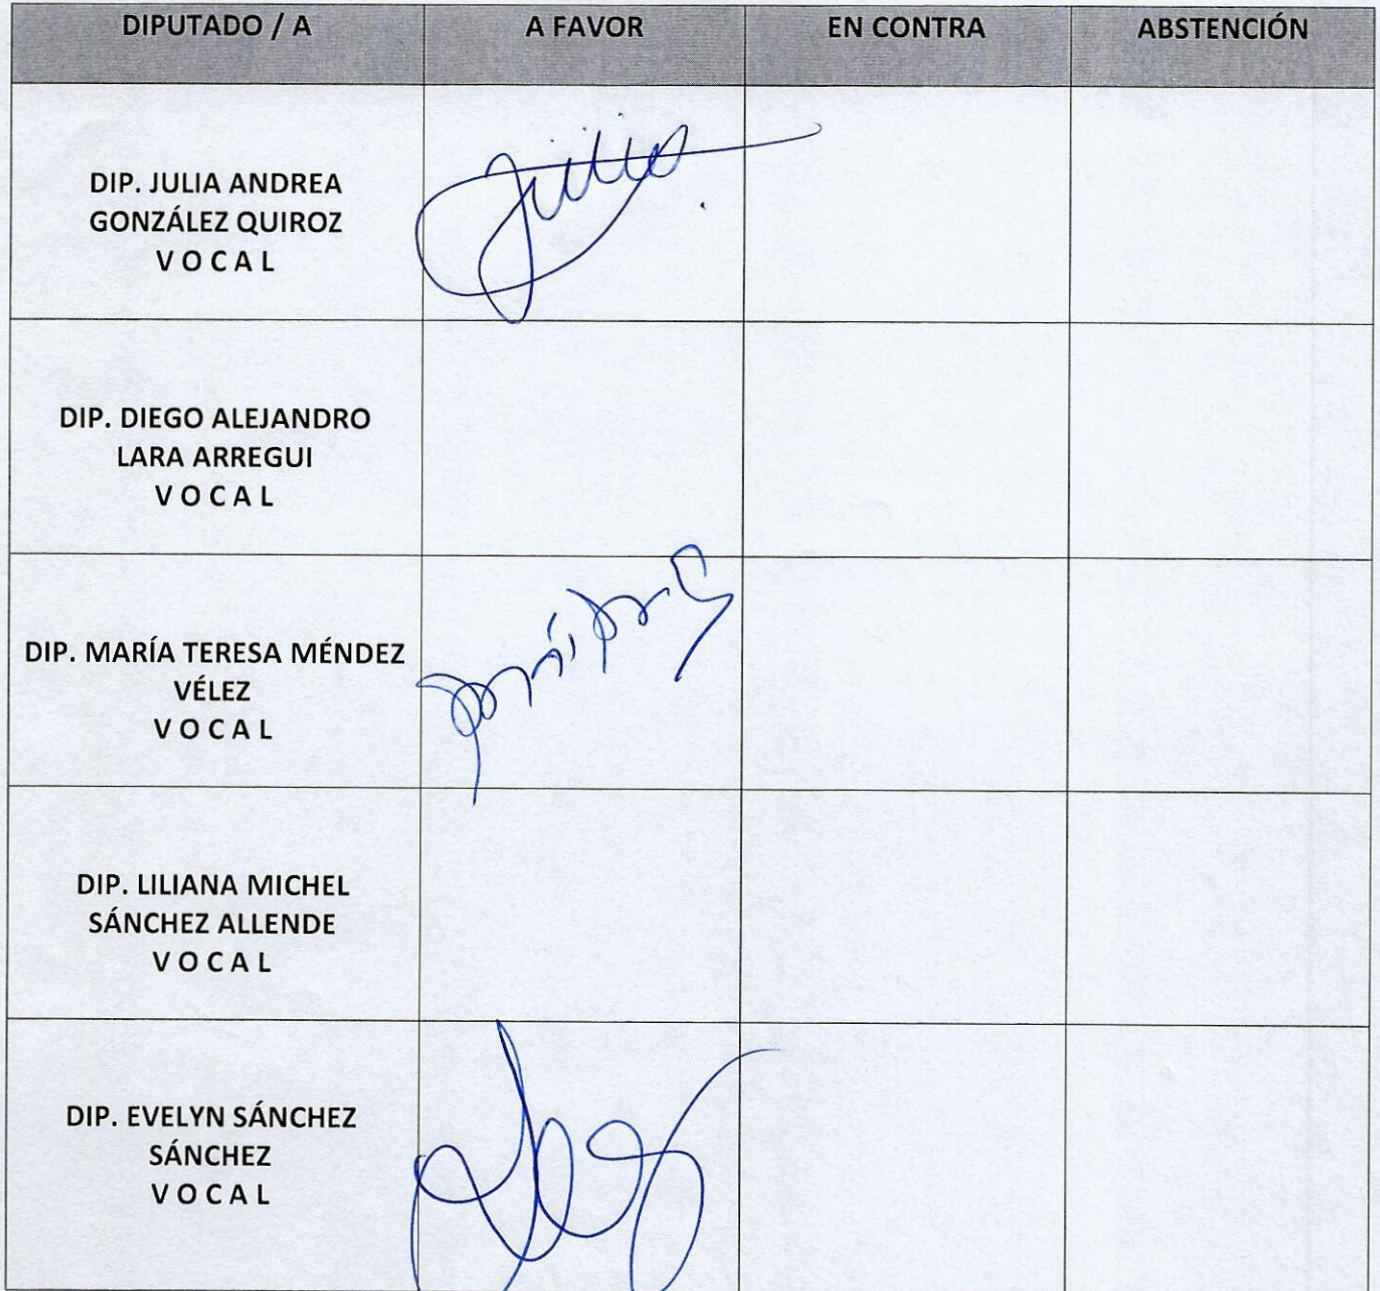 DIPUTADO / A A FAVOR EN CONTRA ABSTENCIÓN
DIP. JULIA ANDREA
GONZÁLEZ QUIROZ
V O C A L
DIP. DIEGO ALEJANDRO
LARA ARREGUI
V O C A L
DIP. MARÍA TERESA MÉNDEZ
VÉLEZ
V O C A L
DIP. LILIANA MICHEL
SÁNCHEZ ALLENDE
V O C A L
DIP. EVELYN SÁNCHEZ
SÁNCHEZ
V O C A L